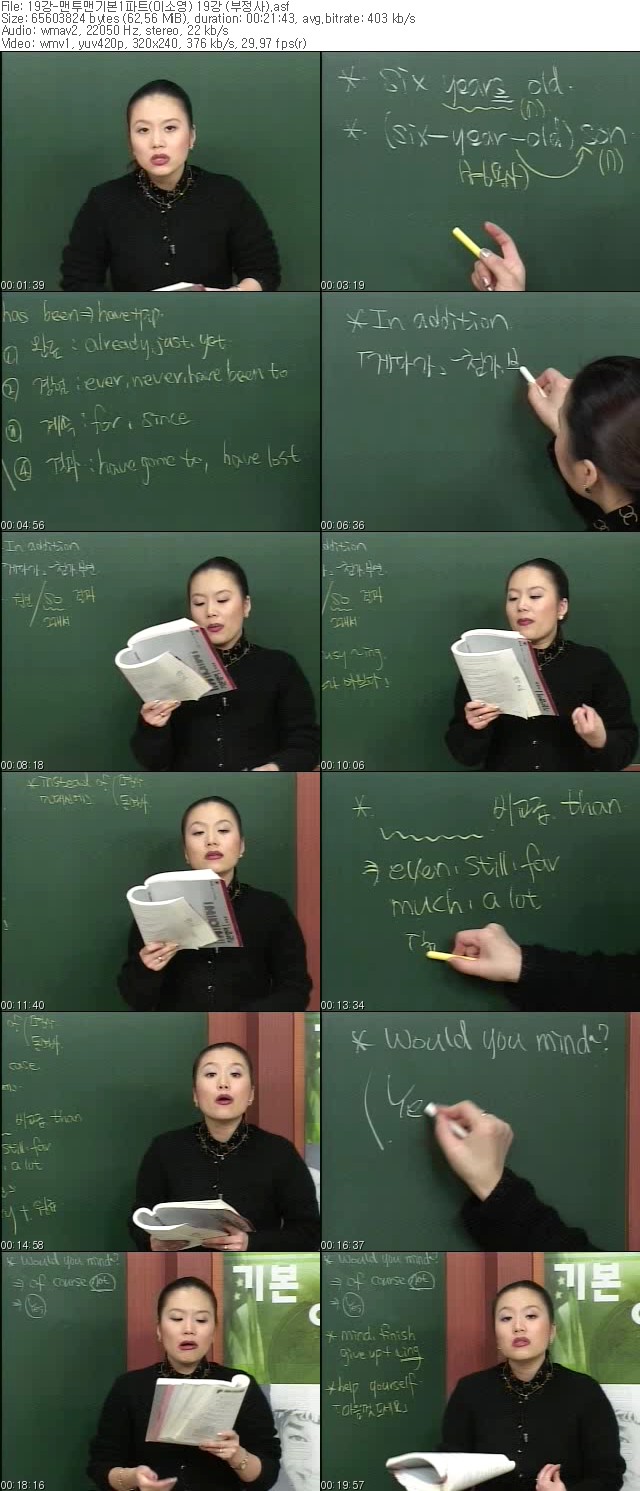 File: 19강-맨투맨기본1파트(이소영) 19강 (부정사).asf
Size: 65603824 bytes (62,56 MiB), duration: 00:21:43, avg,bitrate: 403 kb/s
Audio: wmav2, 22050 Hz, stereo, 22 kb/s
Video: wmv1, yuv420p, 320x240, 376 kb/s, 29,97 fps(r)
00:01:39
* six years old.
(n)
* (six-year-old) son
(n)
00:03:19
has been ⇒ have+p.p.
① 완료 : already, just, yet
② 경험 : ever, never, have been to
③ 계속 : for, since
④ 결과 : have gone to, have lost
00:04:56
* In addition
「게다가, ~첨가, 부
00:06:36
In addition
게다가, ~첨가 부연
so 결과
그래서
00:08:18
ddition
so 결과
그래서
usy ~ing
00:10:06
* instead of
00:11:40
* 비교급 than
⇒ even, still, far
much, a lot
00:13:34
비교급 than
still, far
a lot
00:14:58
* Would you mind~?
Ye
00:16:37
* Would you mind~?
⇒ of course not
⇒
기본
00:18:16
* Would you mind~?
⇒ of course not
⇒
* mind, finish
give up + ~ing
* help yourself
기본
00:19:57